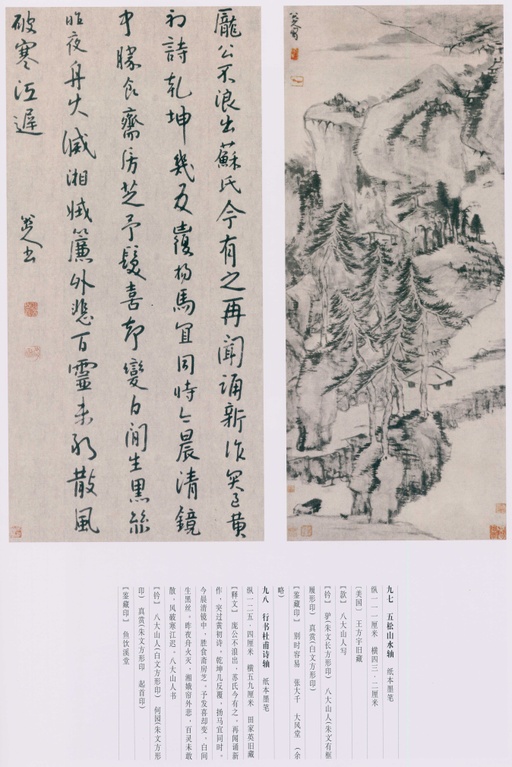 八大山人写
龐公不浪出蘇氏今有之再聞誦新作突過黃
初詩乾坤幾反覆揚馬宜同時今晨清鏡
中勝食齋房芝予髮喜却變白間生黑絲
昨夜舟火滅湘娥簾外悲百靈未敢散風
破寒江遲
八大山人書
九七 五松山水轴 纸本墨笔
纵一一一厘米 横四三·二厘米
(美国) 王方宇旧藏
〔款〕 八大山人写
〔钤〕 驴(朱文长方形印) 八大山人(朱文有框
屐形印) 真赏(白文方形印)
〔鉴藏印〕 别时容易 张大千 大风堂 (余
略)
九八 行书杜甫诗轴 纸本墨笔
纵一二五·四厘米 横五九厘米 田家英旧藏
〔释文〕 庞公不浪出,苏氏今有之。再闻诵新
作,突过黄初诗。乾坤几反覆,扬马宜同时。
今晨清镜中,胜食斋房芝。予发喜却变,白间
生黑丝。昨夜舟火灭,湘娥帘外悲。百灵未敢
散,风破寒江迟。八大山人书
〔钤〕 八大山人(白文方形印) 何园(朱文方形
印) 真赏(朱文方形印 起首印)
〔鉴藏印〕 鱼饮溪堂